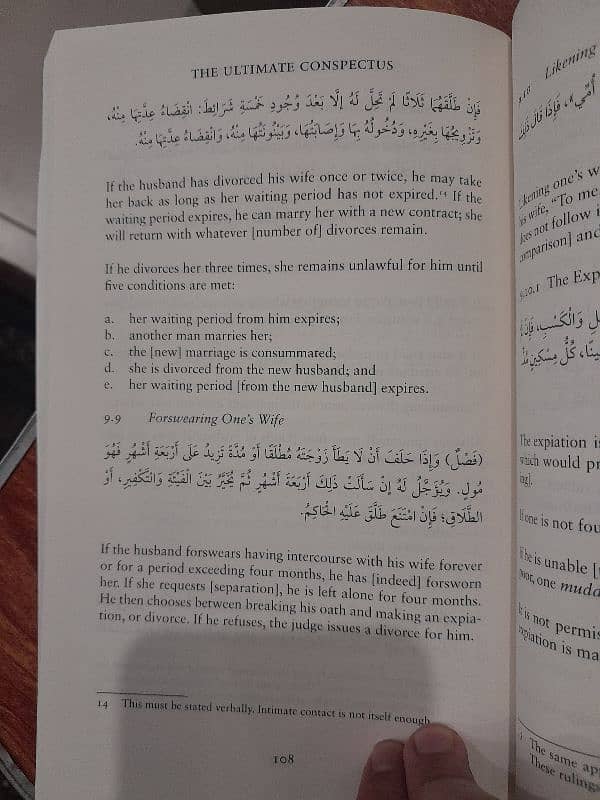 THE ULTIMATE CONSPECTUS
فَإِنْ طَلَّقَهَا ثَلَاثًا لَمْ تَحِلَّ لَهُ إِلَّا بَعْدَ وُجُودِ خَمْسَةِ شَرَائِطَ: انْقِضَاءُ عِدَّتِهَا مِنْهُ،
وَتَزْوِيجُهَا بِغَيْرِهِ، وَدُخُولُهُ بِهَا وَإِصَابَتُهَا، وَبَيْنُونَتُهَا مِنْهُ، وَانْقِضَاءُ عِدَّتِهَا مِنْهُ.
If the husband has divorced his wife once or twice, he may take
her back as long as her waiting period has not expired.¹⁴ If the
waiting period expires, he can marry her with a new contract; she
will return with whatever [number of] divorces remain.
If he divorces her three times, she remains unlawful for him until
five conditions are met:
a. her waiting period from him expires;
b. another man marries her;
c. the [new] marriage is consummated;
d. she is divorced from the new husband; and
e. her waiting period [from the new husband] expires.
9.9 Forswearing One's Wife
(فَصْلٌ) وَإِذَا حَلَفَ أَنْ لَا يَطَأَ زَوْجَتَهُ مُطْلَقًا أَوْ مُدَّةً تَزِيدُ عَلَى أَرْبَعَةِ أَشْهُرٍ فَهُوَ
مُولٍ. وَيُؤَجَّلُ لَهُ إِنْ سَأَلَتْ ذَلِكَ أَرْبَعَةَ أَشْهُرٍ ثُمَّ يُخَيَّرُ بَيْنَ الْفَيْئَةِ وَالتَّكْفِيرِ، أَوْ
الطَّلَاقِ؛ فَإِنْ امْتَنَعَ طَلَّقَ عَلَيْهِ الْحَاكِمُ.
If the husband forswears having intercourse with his wife forever
or for a period exceeding four months, he has [indeed] forsworn
her. If she requests [separation], he is left alone for four months.
He then chooses between breaking his oath and making an expia-
tion, or divorce. If he refuses, the judge issues a divorce for him.
14 This must be stated verbally. Intimate contact is not itself enough
108
Likening
أُمِّي»، فَإِذَا قَالَ
Likening one's w
his wife, "To me
does not follow i
comparison] and
9.10.1 The Exp
The expiation is
which would pr
ing].
If one is not fou
If he is unable [
poor, one mudd
It is not permis
expiation is ma
The same app
These rulings